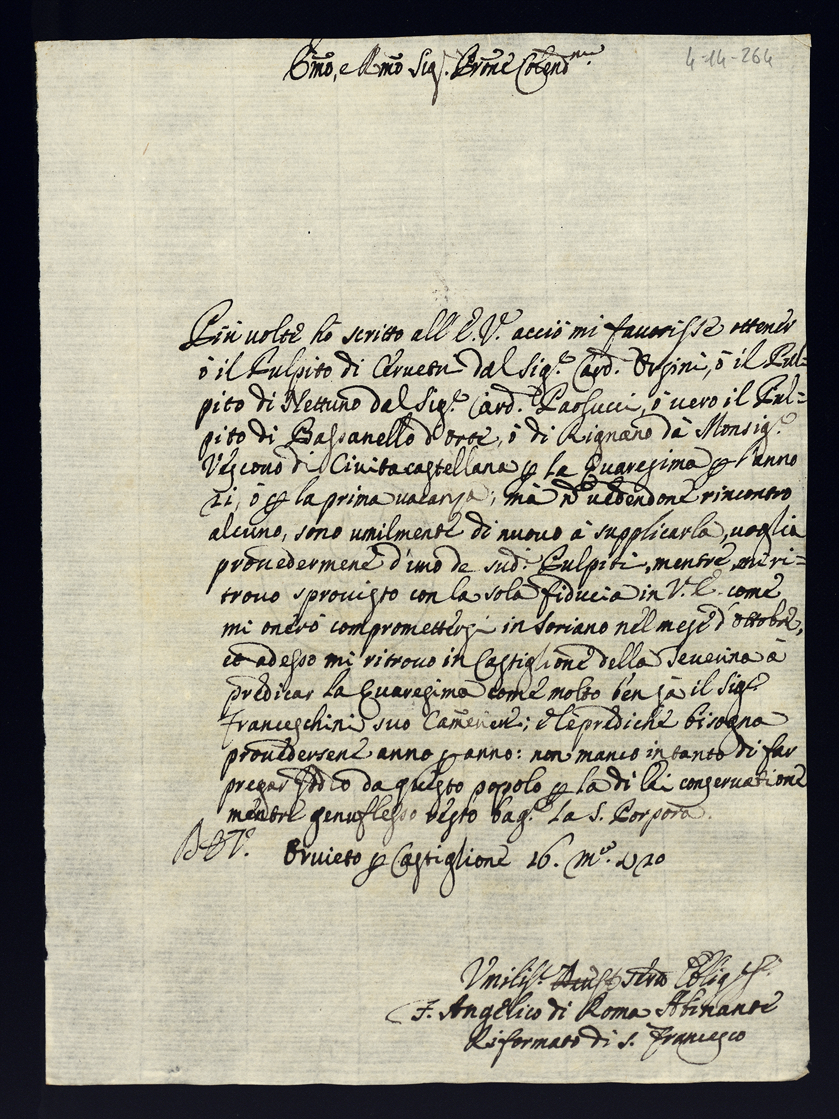 Emo, e Rmo Sig.r Prone Colendmo
4-14-264
Più volte hò scritto all'E.V. acciò mi favorisse ottener
ò il Pulpito di Cervetri dal Sig.r Card. Orsini, ò il Pul=
pito di Nettuno dal Sig.r Card. Paolucci, ò vero il Pul=
pito di Bassanello d'Orte, ò di Rignano dà Monsig.r
Vescovo di Civitacastellana p la Quaresima p l'anno
21, ò p la prima vacanza; mà nō vedendone rincontro
alcuno, sono umilmente di nuovo à supplicarla, voglia
provedermene d'uno de sud.i Pulpiti, mentre mi ri=
trovo sprovisto con la sola fiducia in V.E. come
mi onerò compromettersi in Soriano nel mese d'ottobre,
et adesso mi ritrovo in Castiglione della Teverina à
predicar la Quaresima come molto ben sà il Sig.r
Franceschini suo Cameriere; e le prediche bisogna
provedersene anno p anno: non manco intanto di far
pregar Iddio da questo popolo p la di lei conservatione
mentre genuflesso resto bag.o la S. Porpora.
Orvieto p Castiglione 16. Mzo 1720
Umilis.o Devot.o Servo Oblig.mo
F. Angelico di Roma Abinante
Riformato di S. Francesco